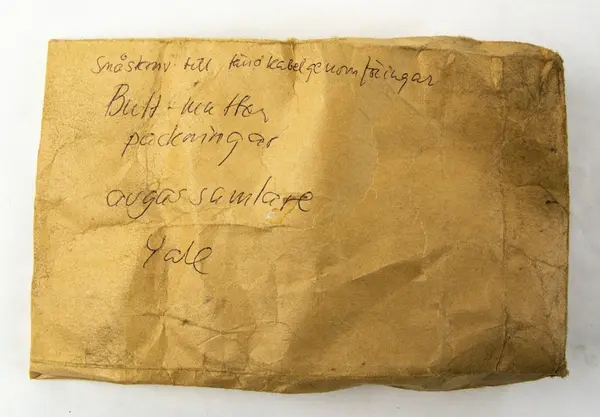 Småskruv till tändkabelgenomföringar
Bult-mutter
packningar
avgassamlare
Yale